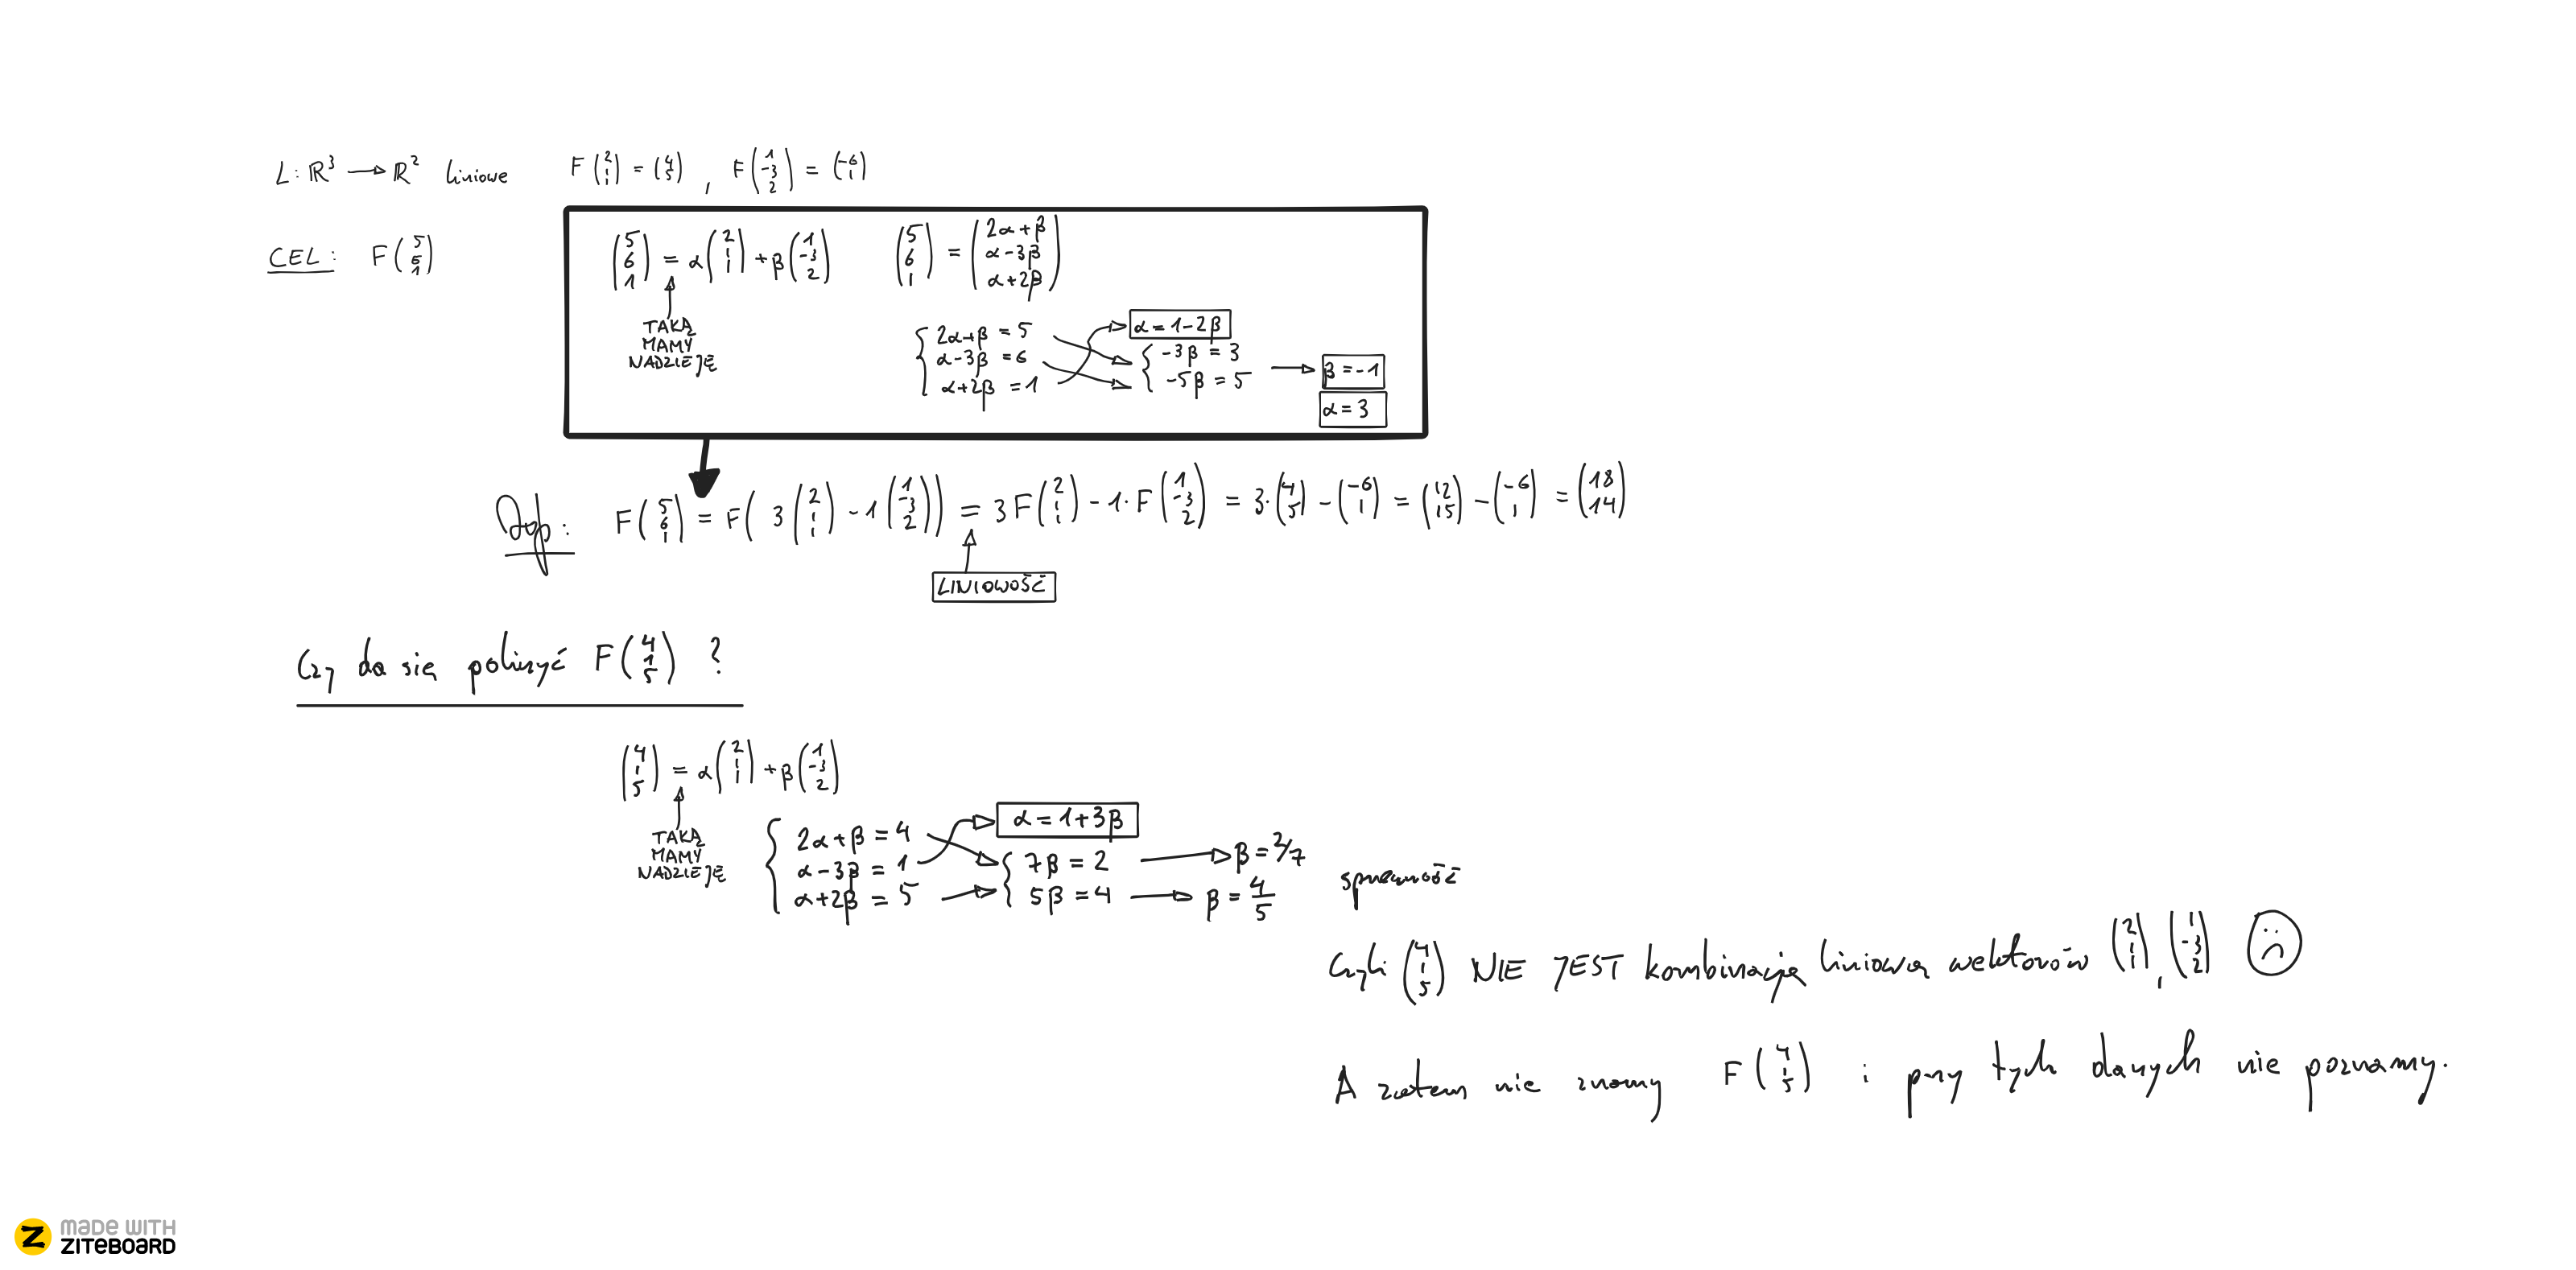 L: ℝ³ → ℝ² liniowe F(2 1 1) = (4 5) , F(1 -3 2) = (-6 1)
CEL: F(5 6 1)
(5 6 1) = α(2 1 1) + β(1 -3 2) (5 6 1) = (2α+β α-3β α+2β)
TAKĄ
MAMY
NADZIEJĘ
2α+β = 5
α-3β = 6
α+2β = 1
α = 1-2β
-3β = 3
-5β = 5
β = -1
α = 3
Odp: F(5 6 1) = F(3(2 1 1) - 1(1 -3 2)) = 3F(2 1 1) - 1·F(1 -3 2) = 3·(4 5) - (-6 1) = (12 15) - (-6 1) = (18 14)
LINIOWOŚĆ
Czy da się policzyć F(4 1 5) ?
(4 1 5) = α(2 1 1) + β(1 -3 2)
TAKĄ
MAMY
NADZIEJĘ
2α+β = 4
α-3β = 1
α+2β = 5
α = 1+3β
7β = 2 → β = 2/7
5β = 4 → β = 4/5
sprzeczność
Czyli (4 1 5) NIE JEST kombinacją liniową wektorów (2 1 1), (1 -3 2)
A zatem nie znamy F(4 1 5) i przy tych danych nie poznamy.
MADE WITH
ZITEBOARD